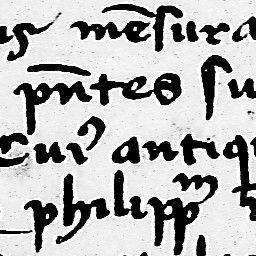 us mēsura
pn̄tes su
Cui9 antiqu
philippᵐ